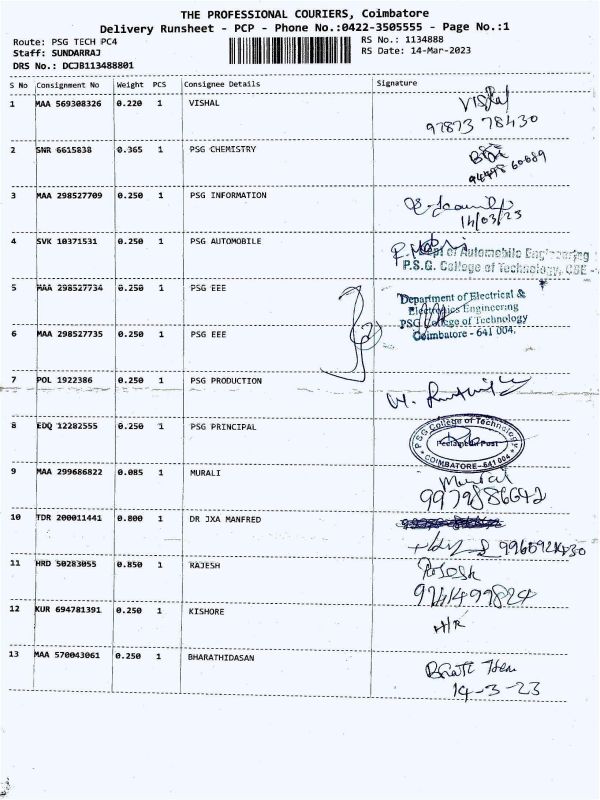 THE PROFESSIONAL COURIERS, Coimbatore
Delivery Runsheet - PCP - Phone No.:0422-3505555 - Page No.:1
Route: PSG TECH PC4
RS No.: 1134888
Staff: SUNDARRAJ
RS Date: 14-Mar-2023
DRS No.: DCJB113488801
S No Consignment No Weight PCS Consignee Details Signature
1 MAA 569308326 0.220 1 VISHAL Vishal
97873 78430
2 SNR 6615838 0.365 1 PSG CHEMISTRY
3 MAA 298527709 0.250 1 PSG INFORMATION
14/03/23
4 SVK 10371531 0.250 1 PSG AUTOMOBILE
Dept of Automobile Engineering
P.S.G. College of Technology, CBE -
5 MAA 298527734 0.250 1 PSG EEE
Department of Electrical &
Electronics Engineering
PSG College of Technology
Coimbatore - 641 004.
6 MAA 298527735 0.250 1 PSG EEE
7 POL 1922386 0.250 1 PSG PRODUCTION
8 EDQ 12282555 0.250 1 PSG PRINCIPAL
PSG College of Technology
Peelamedu Post
COIMBATORE-641 004
9 MAA 299686822 0.085 1 MURALI Murali
10 TDR 200011441 0.800 1 DR JXA MANFRED
11 HRD 50283055 0.850 1 RAJESH
12 KUR 694781391 0.250 1 KISHORE H/R
13 MAA 570043061 0.250 1 BHARATHIDASAN
14-3-23